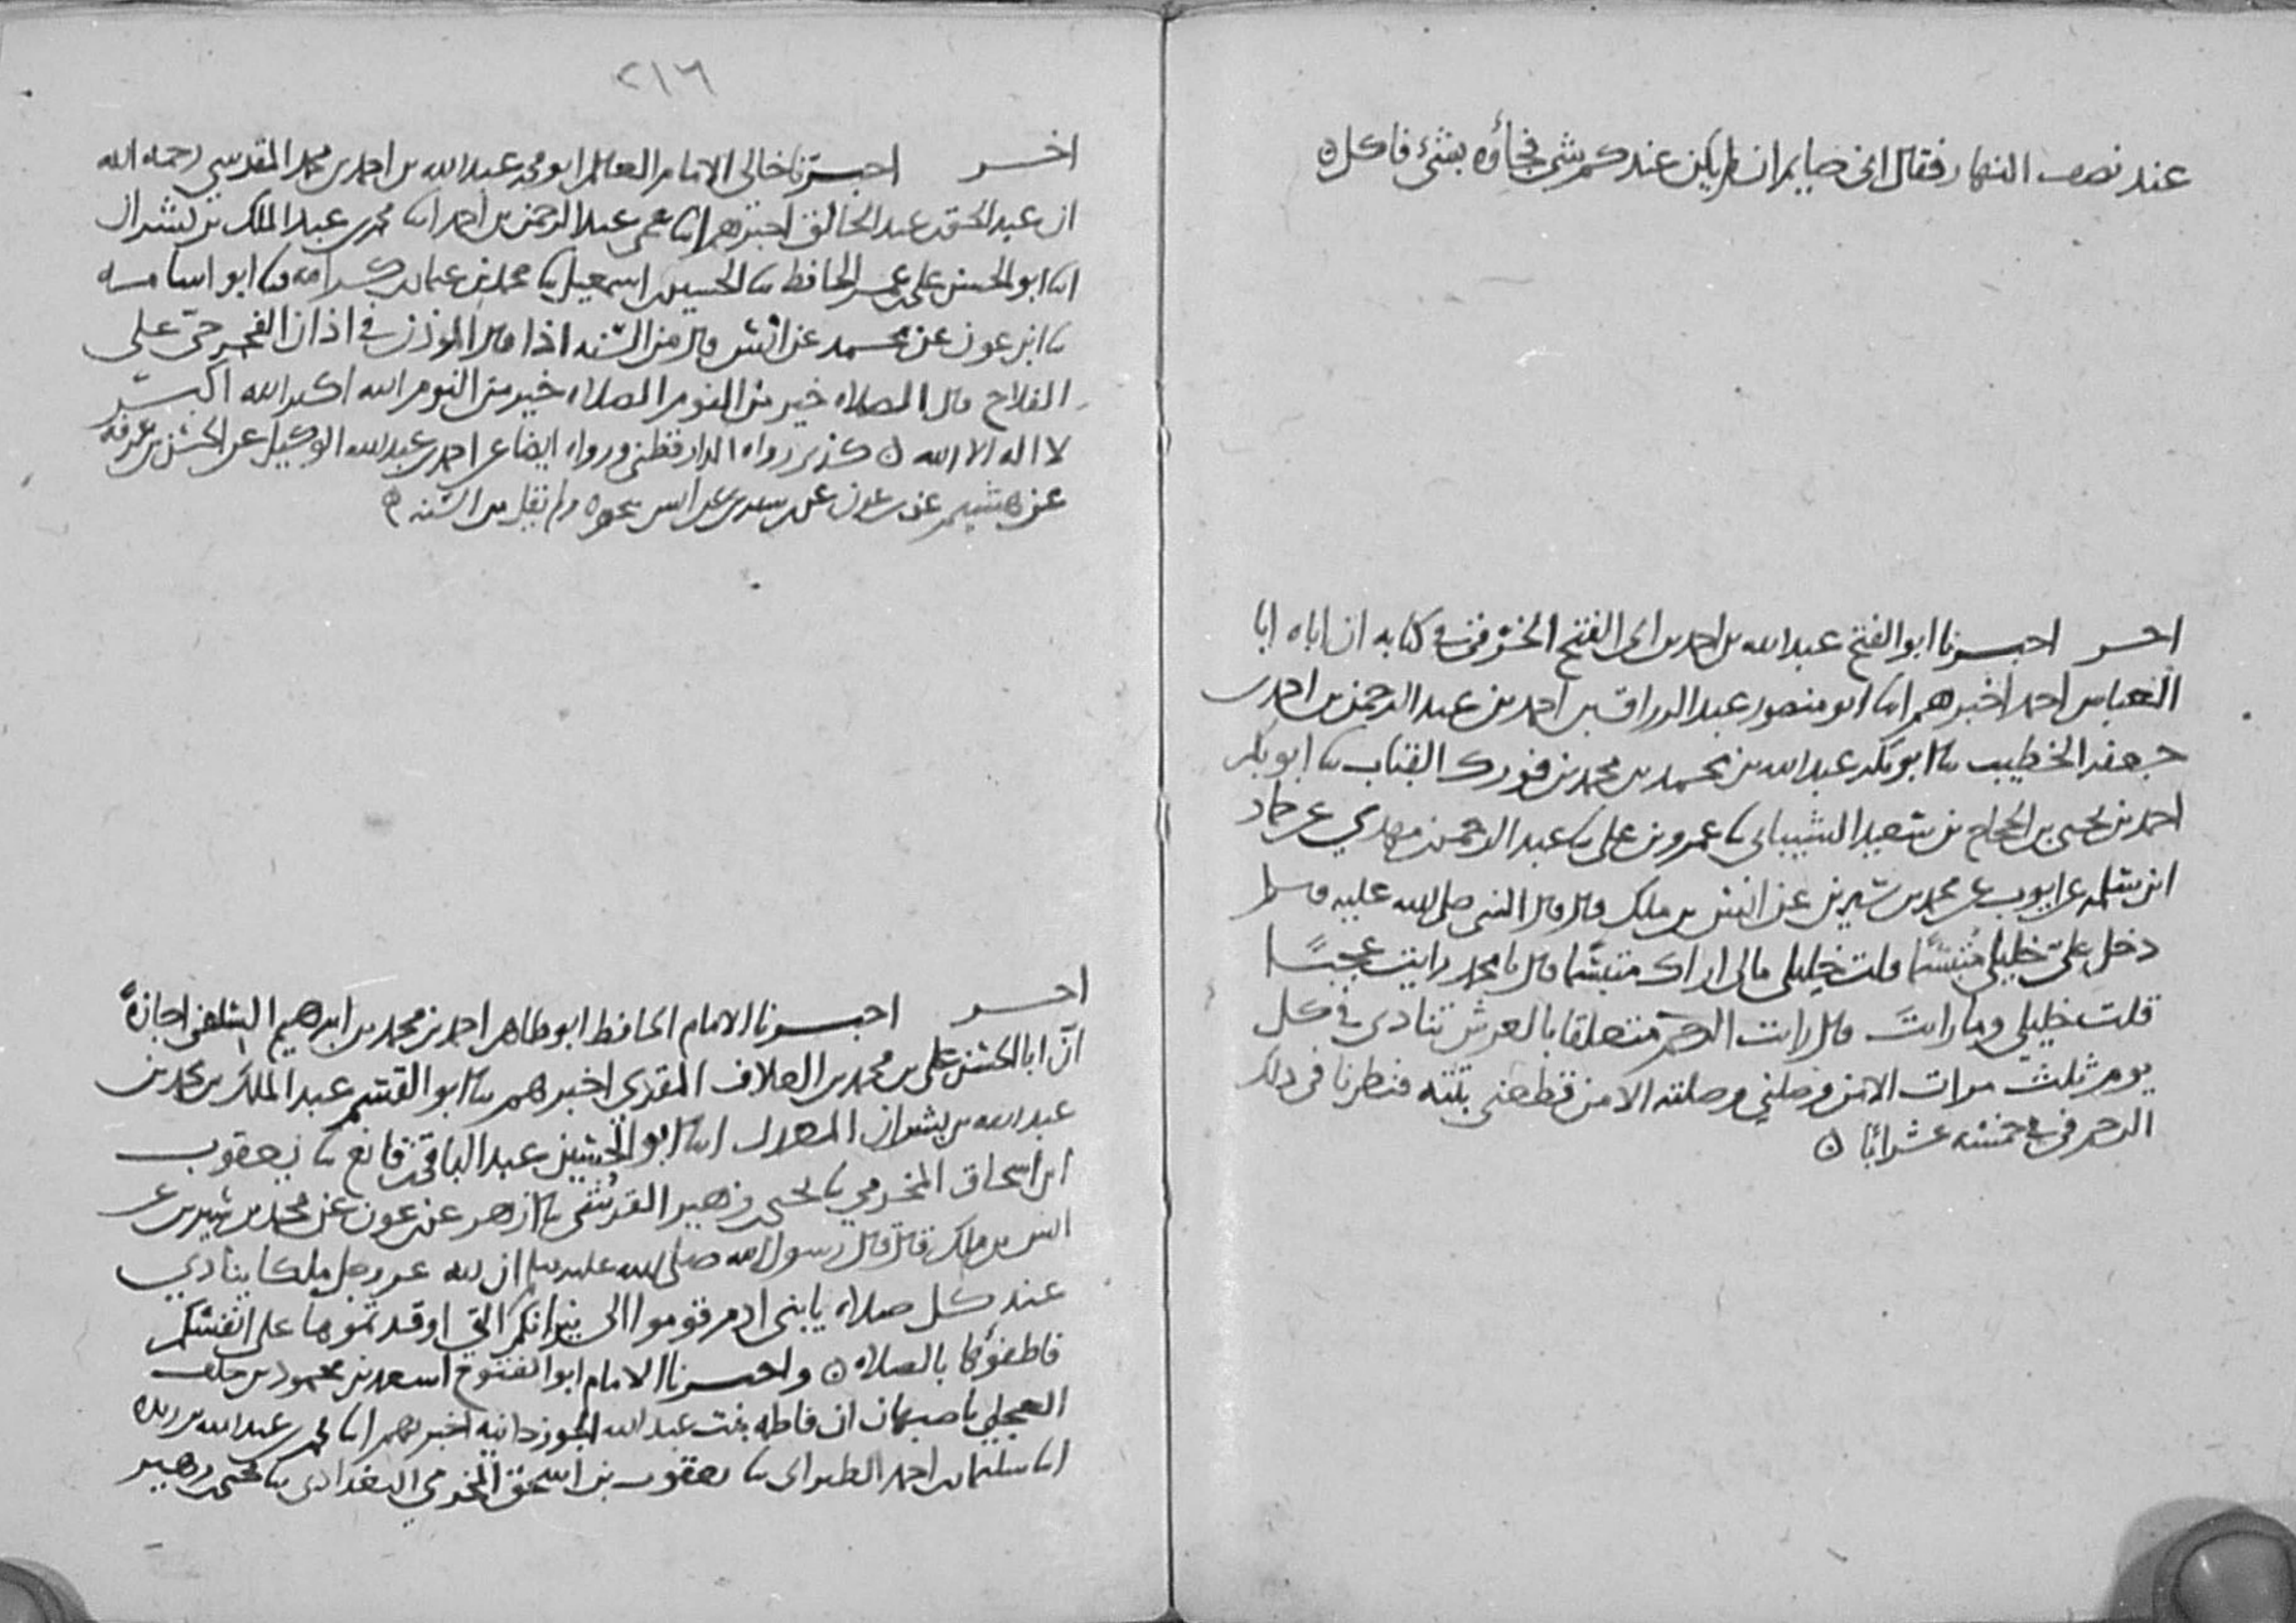 عند نصف النهار فقال انى صايم ان لم يكن عندكم شى فجاؤه بشئ فاكل ه
اخر اخبرنا ابو الفتح عبد الله بن احمد بن ابى الفتح الخرقى فى كتابه ان اباه ابا
العباس احمد اخبرهم انا ابو منصور عبد الرزاق بن احمد بن عبد الرحمن بن احمد بن
جعفر الخطيب نا ابو بكر عبد الله بن محمد بن محمد بن فورك القباب نا ابو بكر
احمد بن يحيى بن الحجاج بن سعيد الشيبانى نا عمرو بن على نا عبد الرحمن بن مهدي عن حماد
ابن سلمه عن ايوب عن محمد بن سيرين عن انس بن ملك قال قال النبى صلى الله عليه وسلم
دخل علىّ خليلى مبتسما قلت خليلى مالى اراك متبسما قال يا محمد رايت عجبًا
قلت خليلى وما رايت قال رايت الرحم متعلقا بالعرش تنادى فى كل
يوم ثلث مرات الا من وصلنى وصلته الا من قطعنى بتته فنظرنا فى ذلك
الرحم فى خمسه عشر ابًا ه
٢١٦
اخر اخبرنا خالى الامام العالم ابو محمد عبد الله بن احمد بن محمد المقدسي رحمه الله
ان عبد الحق بن عبد الخالق اخبرهم انا عمى عبد الرحمن بن احمد انا محمد بن عبد الملك بن بشران
انا ابو الحسن على بن عمر الحافظ نا الحسين بن اسمعيل نا محمد بن عثمان بن كرامه نا ابو اسامه
نا ابن عون عن محمد عن انس قال من السنه اذا قال الموذن فى اذان الفجر حىّ على
الفلاح قال الصلاه خير من النوم الصلاه خير من النوم الله اكبر الله اكبر
لا اله الا الله ه كذى رواه الدارقطنى ورواه ايضا عن احمد بن عبد الله الوكيل عن الحسن بن عرفه
عن هشيم عن بن عون عن بن سيرين عن انس بنحوه ولم يقل من السنه ه
اخر اخبرنا الامام الحافظ ابو طاهر احمد بن محمد بن ابرهيم السلفى اجازةً
انّ ابا الحسن على بن محمد بن العلاف المقرى اخبرهم نا ابو القسم عبد الملك بن محمد بن
عبد الله بن بشران المعدل انا ابو الحسين عبد الباقى بن قانع نا يعقوب
ابن اسحاق المخرمي نا يحيى بن زهير القرشى نا ازهر عن بن عون عن محمد بن سيرين عن
انس بن ملك قال قال رسول الله صلى الله عليه وسلم ان لله عز وجل ملكا ينادي
عند كل صلاه يابنى ادم قوموا الى نيرانكم التي اوقدتموها على انفسكم
فاطفؤها بالصلاه ه واخبرنا الامام ابو الفتوح اسعد بن محمود بن خلف
العجلي باصبهان ان فاطمه بنت عبد الله الجوزدانيه اخبرهم انا محمد بن عبد الله بن ريذه
انا سليمان بن احمد الطبرانى نا يعقوب بن اسحق المخرمي البغدادى نا يحيى بن زهير